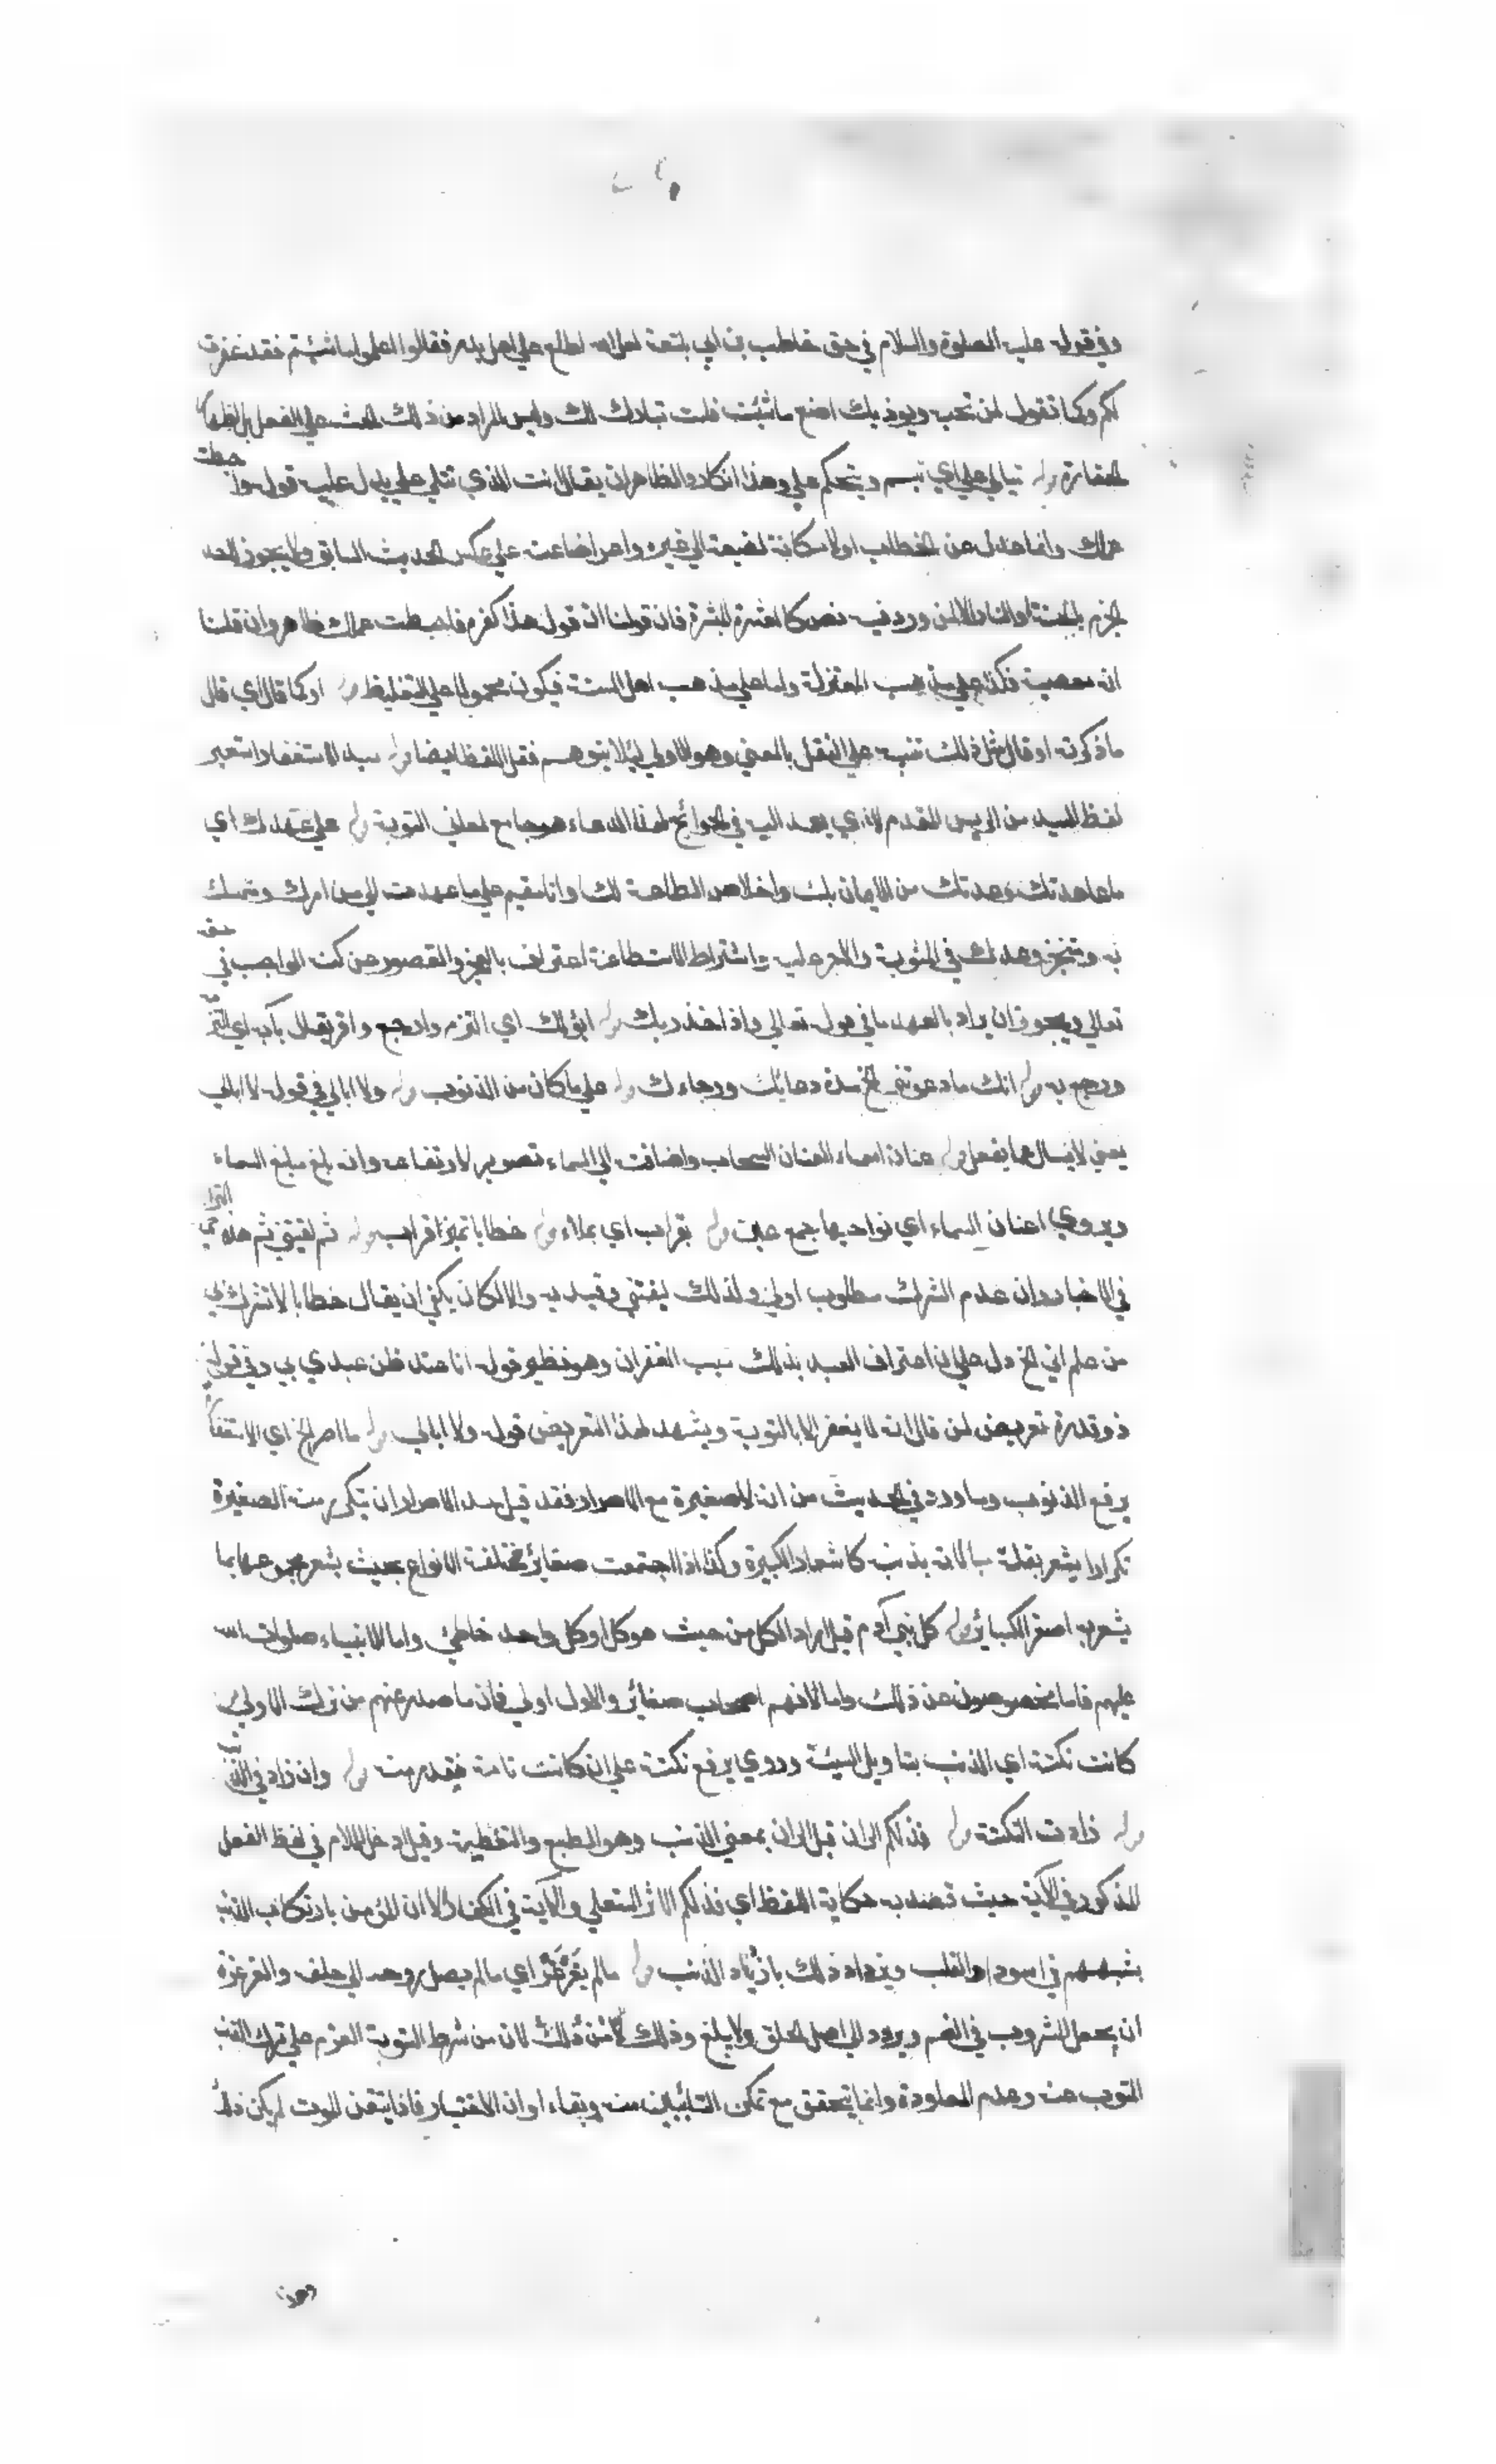 وفي قوله عليه الصلوة والسلام في حق حاطب بن ابي بلتعة لعل الله اطلع علي اهل بدر فقالوا اعملوا ما شئتم فقد غفرت
لكم وكما تقول لمن تحب ويوذيك اصنع ما شئت فلست تبارك لك وليس المراد من ذلك الحث علي الفعل بل اظهار
الحفاوة قوله تيالي علي اي تبسم ويتحكم علي وهذا انكار والظاهر ان يقال انت الذي تتلي علي يدل عليه قوله وا حبطت
عملك وانما عدل عن الخطاب اولا شكاية لضيعة الي غيره واعراضا عنه علي عكس الحديث السابق ولا يجوز لاحد
الجزم بالجنة او النار الا لمن ورد فيه نص كالعشرة المبشرة فان قولنا ان قوله هذا كفر فاحبطت عملك ظاهر وان قلنا
انه معصية فكذا علي مذهب المعتزلة واما علي مذهب اهل السنة فيكون محمولا علي التغليظ قوله او كما قال اي قال
ما ذكرته او قال مثل ذلك تنبيه علي النقل بالمعني وهو الاولي لئلا يتوهم نقل اللفظ ايضا قوله سيد الاستغفار استعير
لفظ السيد من الريس المقدم الذي يعمد اليه في الحوائج لهذا الدعاء هو جامع لمعاني التوبة قوله علي عهدك اي
ما عاهدتك وعدتك من الايمان بك واخلاص الطاعة لك وانا مقيم علي ما عهدت الي من امرك ومتمسك
به ومتنجز وعدك في المثوبة والاجر عليه واشتراط الاستطاعة اعتراف بالعجز والقصور عن كنه الواجب في حقه
تعالي ويجوز ان يراد بالعهد ما في قوله تعالي واذ اخذ ربك قوله ابوء لك اي التزم وارجع واقر يقال باء به اي التزمه
ورجع به قوله انك ما دعوتني الخ مدة دعائك ورجاءك قوله علي ما كان من الذنوب قوله ولا ابالي في قوله لا ابالي
يعني لا يسال عما يفعل قوله عنان السماء العنان السحاب واضافته الي السماء تصوير لارتفاعه وانه بلغ مبلغ السماء
ويروي اعنان السماء اي نواحيها جمع عنن قوله بقراب اي بملاء قوله خطايا تميز قراب قوله ثم لقيتني ثم هذه للتراخي
في الاخبار وان عدم الشرك مطلوب اولي ولذلك لقيتني وقيد به والا لكان يكفي ان يقال خطايا لا تشرك بي
من علم اني الخ دل علي ان اعتراف العبد بذلك سبب الغفران وهو نظير قوله انا عند ظن عبدي بي وفي قوله اني
ذو قدرة تعريض لمن قال انه لا يغفر الا بالتوبة ويشهد لهذا التعريض قوله ولا ابالي قوله ما اصر الخ اي الاستغفار
يرفع الذنوب وما ورد في الحديث من انه لا صغيرة مع الاصرار فقد قيل حد الاصرار ان يتكرر منه الصغيرة
تكرارا يشعر بقلة مبالاته بذنبه كاشعار الكبيرة وكذا اذا اجتمعت صغائر مختلفة الانواع بحيث يشعر مجموعها بما
يشعر به اصغر الكبائر قوله كل بني آدم قيل اراد الكل من حيث هو كل او كل واحد خاطئ واما الانبياء صلوات الله
عليهم فاما مخصوصون عن ذلك واما لانهم اصحاب صغائر والاول اولي فان ما صدر عنهم من ترك الاولي
كانت نكتة اي الذنب بتاويل السيئة وروي برفع نكتة علي ان كانت تامة فيقدر منه قوله وان زاد في الذنب
قوله زادت النكتة قوله فذلكم الران قيل الران بمعني الذنب وهو الطبع والتغطية وقيل ادخل اللام في لفظ الفعل
المذكور في الآية حيث قصد به حكاية اللفظ اي فذلكم الاثر المستعلي والآية في الكفار الا ان المؤمن بارتكاب الذنب
يشبههم في اسوداد القلب ويزداد ذلك بازدياد الذنب قوله ما لم يغرغر اي ما لم يصل روحه الي حلقه والغرغرة
ان يجعل المشروب في الفم ويردد الي اصل الحلق ولا يبلغ وذلك لان من شرط التوبة العزم علي ترك الذنب
المتوب عنه وعدم المعاودة وانما يتحقق مع تمكن التائبين منه وبقاء اوان الاختيار فاذا تيقن الموت لم يكن ذلك